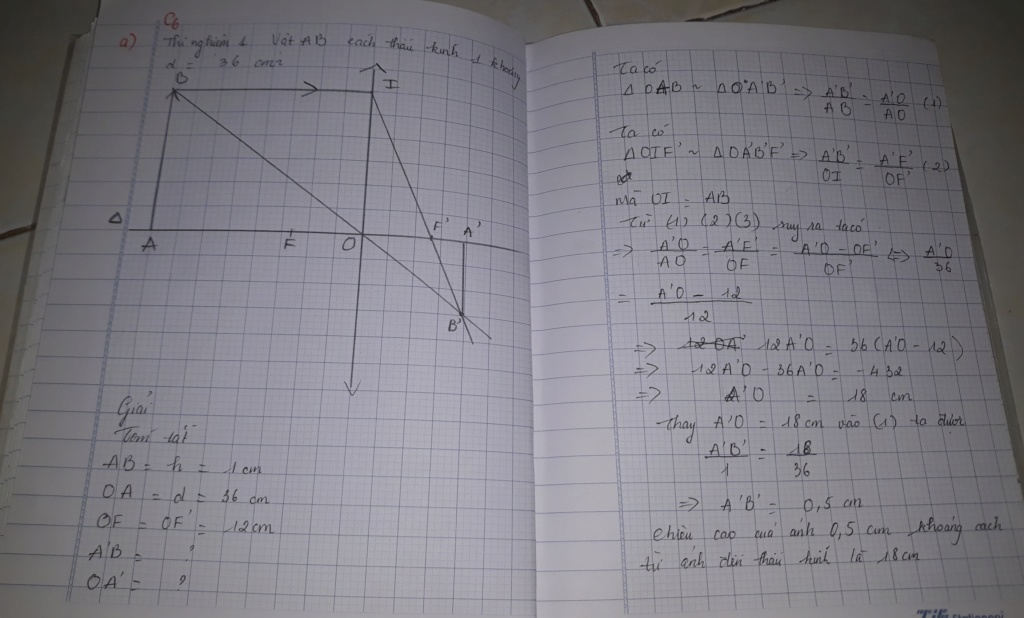 C6
a) Thí nghiệm 1 Vật AB cách thấu kính 1 khoảng
d = 36 cm
B
I
Δ
A
F
O
F'
A'
B'
Giải
Tóm tắt
AB = h = 1 cm
OA = d = 36 cm
OF = OF' = 12 cm
A'B = ?
OA' = ?
Ta có
Δ OAB ~ Δ O'A'B' => A'B'/AB = A'O/AO (1)
Ta có
Δ OIF' ~ Δ OA'B'F' => A'B'/OI = A'F'/OF' (2)
mà OI = AB
Từ (1) (2) (3) suy ra ta có
=> A'O/AO = A'F'/OF = A'O - OF'/OF' <=> A'O/36
= A'O - 12/12
=> 12A'O = 36(A'O - 12)
=> 12A'O - 36A'O = -432
=> A'O = 18 cm
Thay A'O = 18 cm vào (1) ta được
A'B'/1 = 18/36
=> A'B' = 0,5 cm
chiều cao cuả ảnh 0,5 cm khoảng cách
từ ảnh đến thấu kính là 18 cm